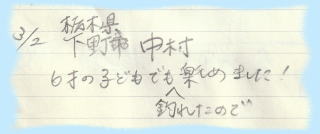 3/2 栃木県
下野市 中村
6才の子どもでも楽しめました!
釣れたので